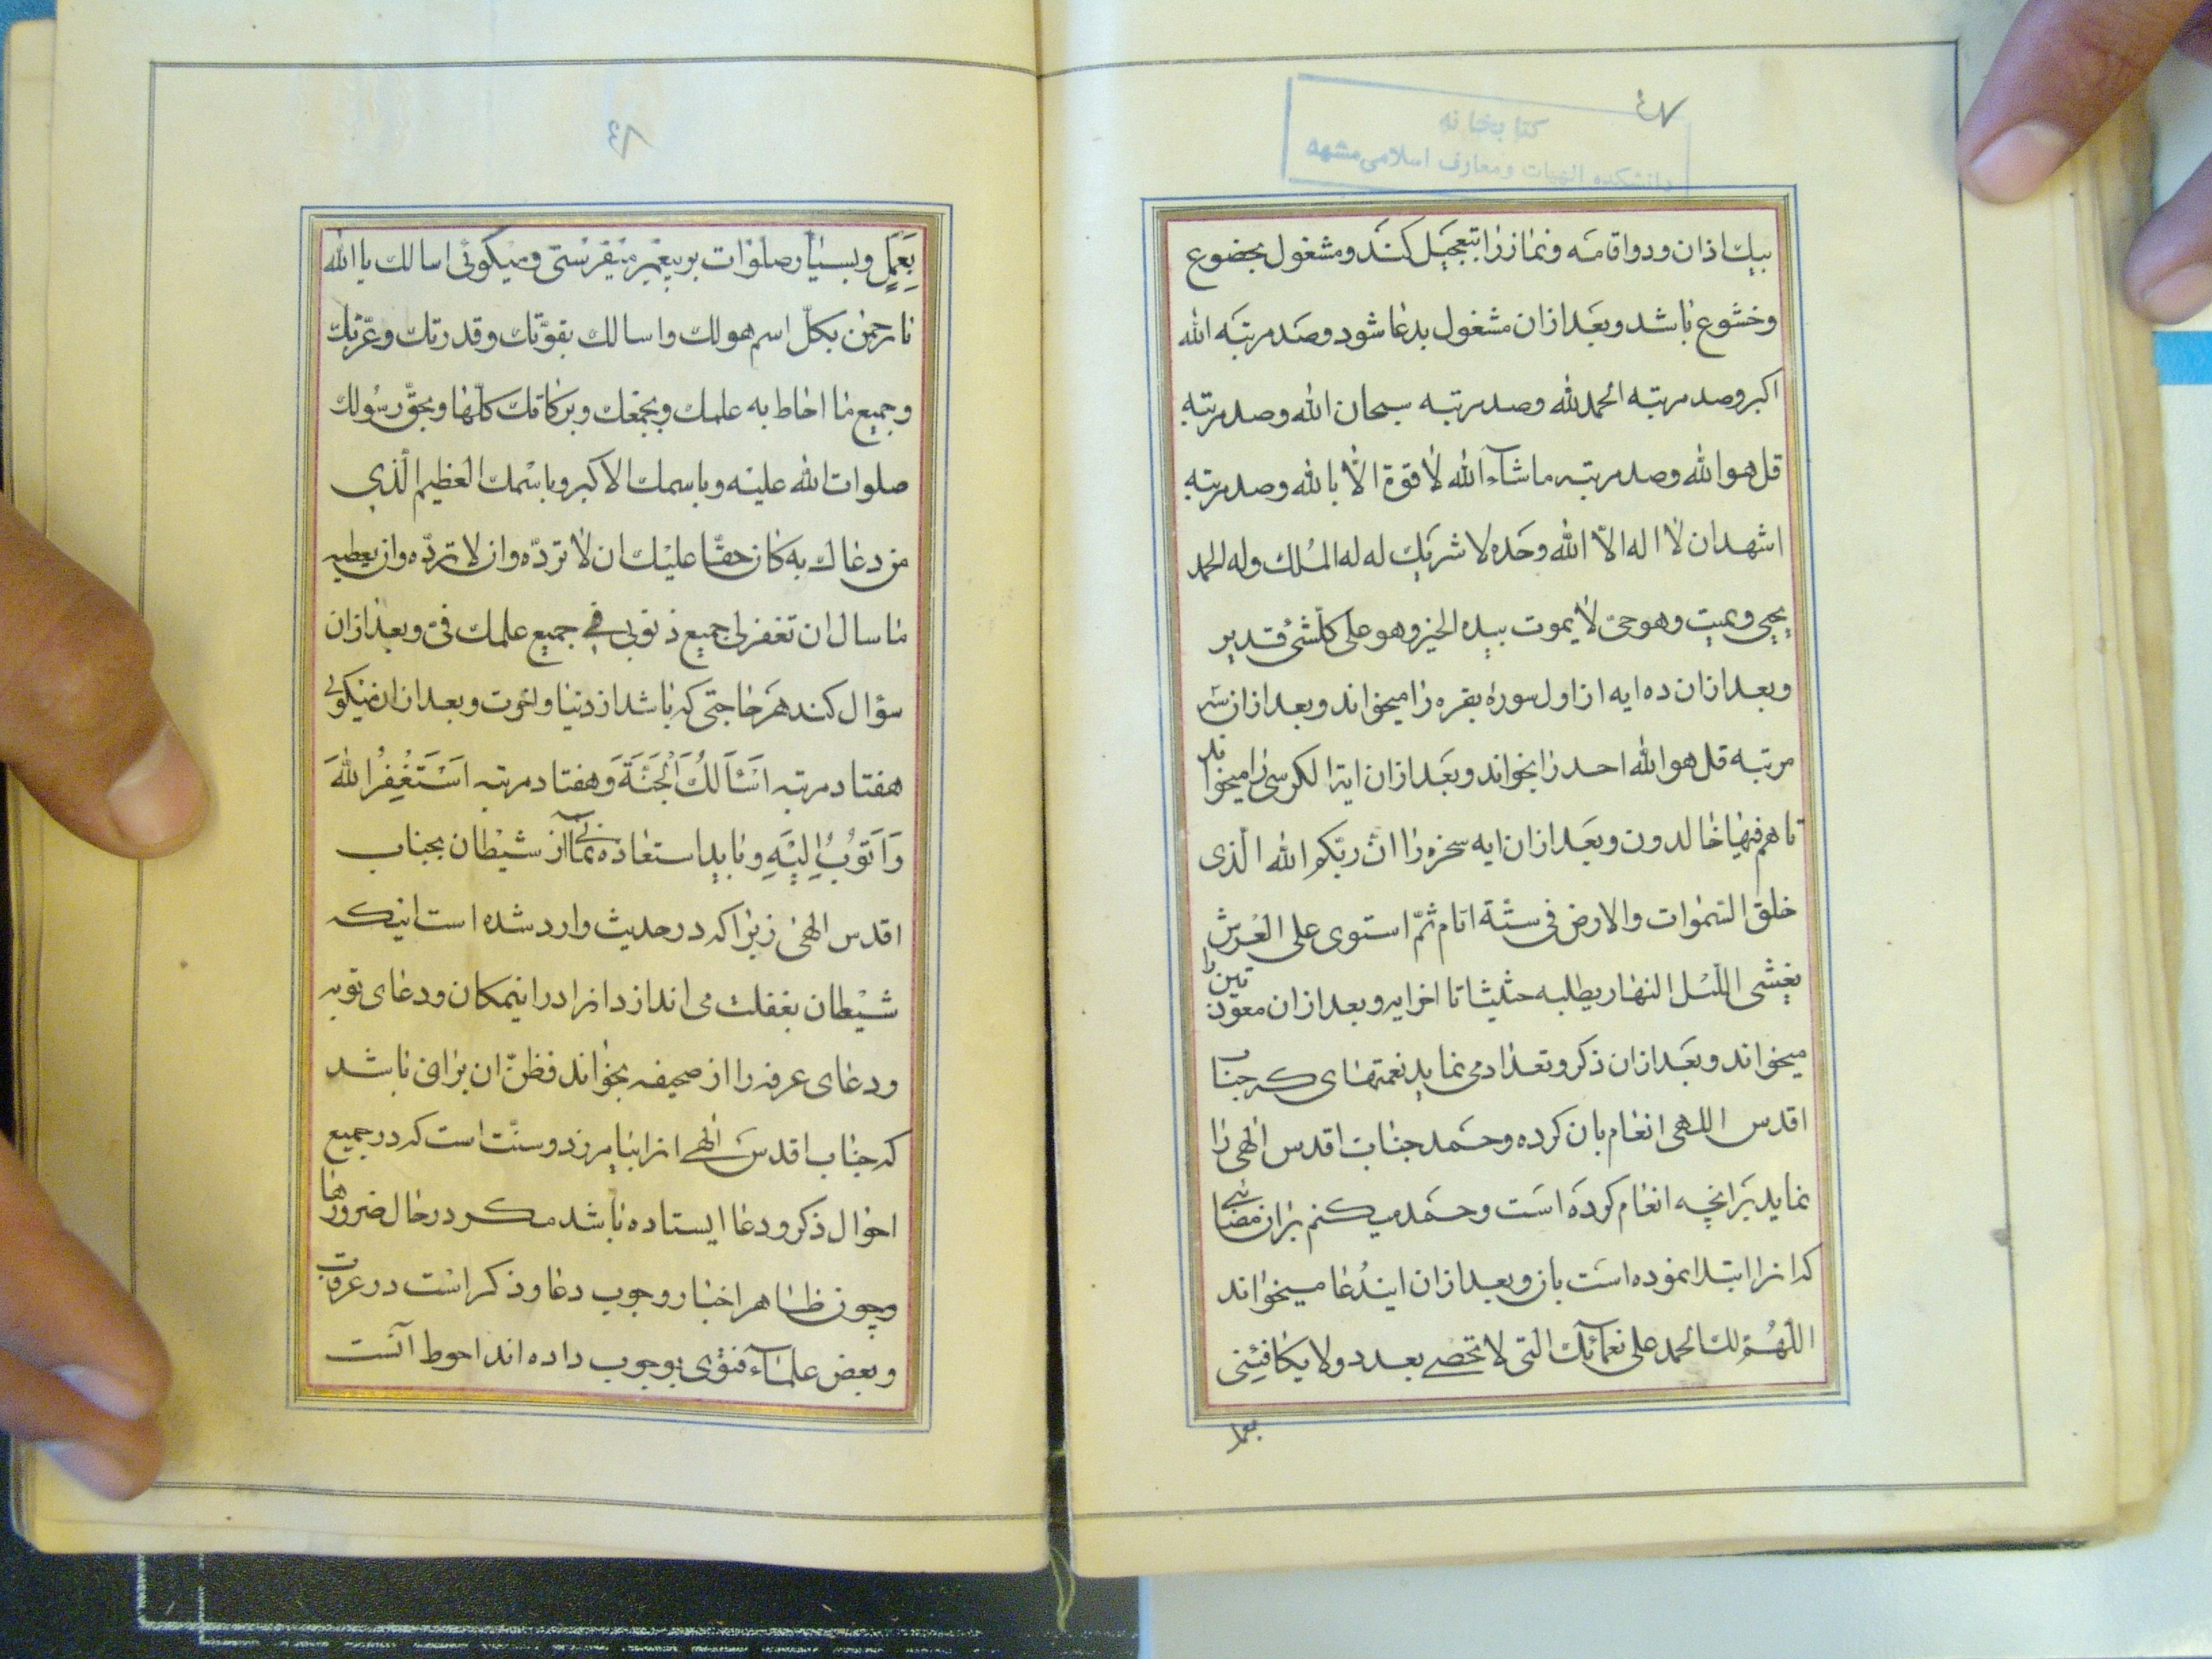 ٤٧
كتابخانه
دانشكده الهيات ومعارف اسلامى مشهد
بيك اذان ودواقامه ونماز را بتعجيل كند ومشغول بخضوع
وخشوع باشد وبعد ازان مشغول بدعا شود وصد مرتبه الله
اكبر وصد مرتبه الحمد لله وصد مرتبه سبحان الله وصد مرتبه
قل هو الله وصد مرتبه ما شاء الله لا قوة الا بالله وصد مرتبه
اشهد ان لا اله الا الله وحده لا شريك له له الملك وله الحمد
يحيى ويميت وهو حى لا يموت بيده الخير وهو على كلشئ قدير
وبعد ازان ده ايه از اول سوره بقره را ميخواند وبعد ازان سه
مرتبه قل هو الله احد را بخواند وبعد ازان اية الكرسى را ميخواند
تا هم فيها خالدون وبعد ازان ايه سخره را ان ربكم الله الذى
خلق السموات والارض فى ستة ايام ثم استوى على العرش
يغشى الليل النهار يطلبه حثيثا تا اخر ايه وبعد ازان معوذتين را
ميخواند وبعد ازان ذكر وتعداد مى نمايد نعمتهاى كه جناب
اقدس اللهى انعام بان كرده وحمد جناب اقدس الهى را
نمايد برانچه انعام كرده است وحمد ميكنم بران
كه انرا ابتدا نموده است بان وبعد ازان ايندعا ميخواند
اللهم لك الحمد على نعمائك التى لا تحصى بعدد ولا يكافئنى
بعمل وبسيار صلوات بر پيغمبر ميفرستى وميگوئى اسالك يا الله
يا رحمن بكل اسم هو لك واسالك بقوتك وقدرتك وعزتك
وجميع ما احاط به علمك وبجمعك وبركاتك كلها وبحق رسولك
صلوات الله عليه وباسمك الاكبر وباسمك العظيم الذي
من دعاك به كان حقا عليك ان لا تردّه وان لا تردّه وان يعطيه
ما سال ان تغفر لى جميع ذنوبي في جميع علمك فىّ وبعد ازان
سؤال كند هر حاجتى كه باشد از دنيا واخرت وبعد ازان ميگوئى
هفتاد مرتبه اَسْاَلُكَ الْجَنَّةَ وهفتاد مرتبه اَسْتَغْفِرُ اللهَ
وَاَتُوبُ اِلَيْهِ وبايد استعاذه نمائى از شيطان بجناب
اقدس الهى زيرا كه در حديث وارد شده است اينكه
شيطان بغفلت مى اندازد انرا در اينمكان ودعاى توبه
ودعاى عرفه را از صحيفه بخواند فظنّ ان براين باشد
كه جناب اقدس الهى انرا بيامرزد وسنّت است كه در جميع
احوال ذكر ودعا ايستاده باشد مگر در حال ضرورتها
وچون ظاهر اخبار وجوب دعا وذكر است در عرفات
وبعض علماء فتوى بوجوب داده اند احوط آنست